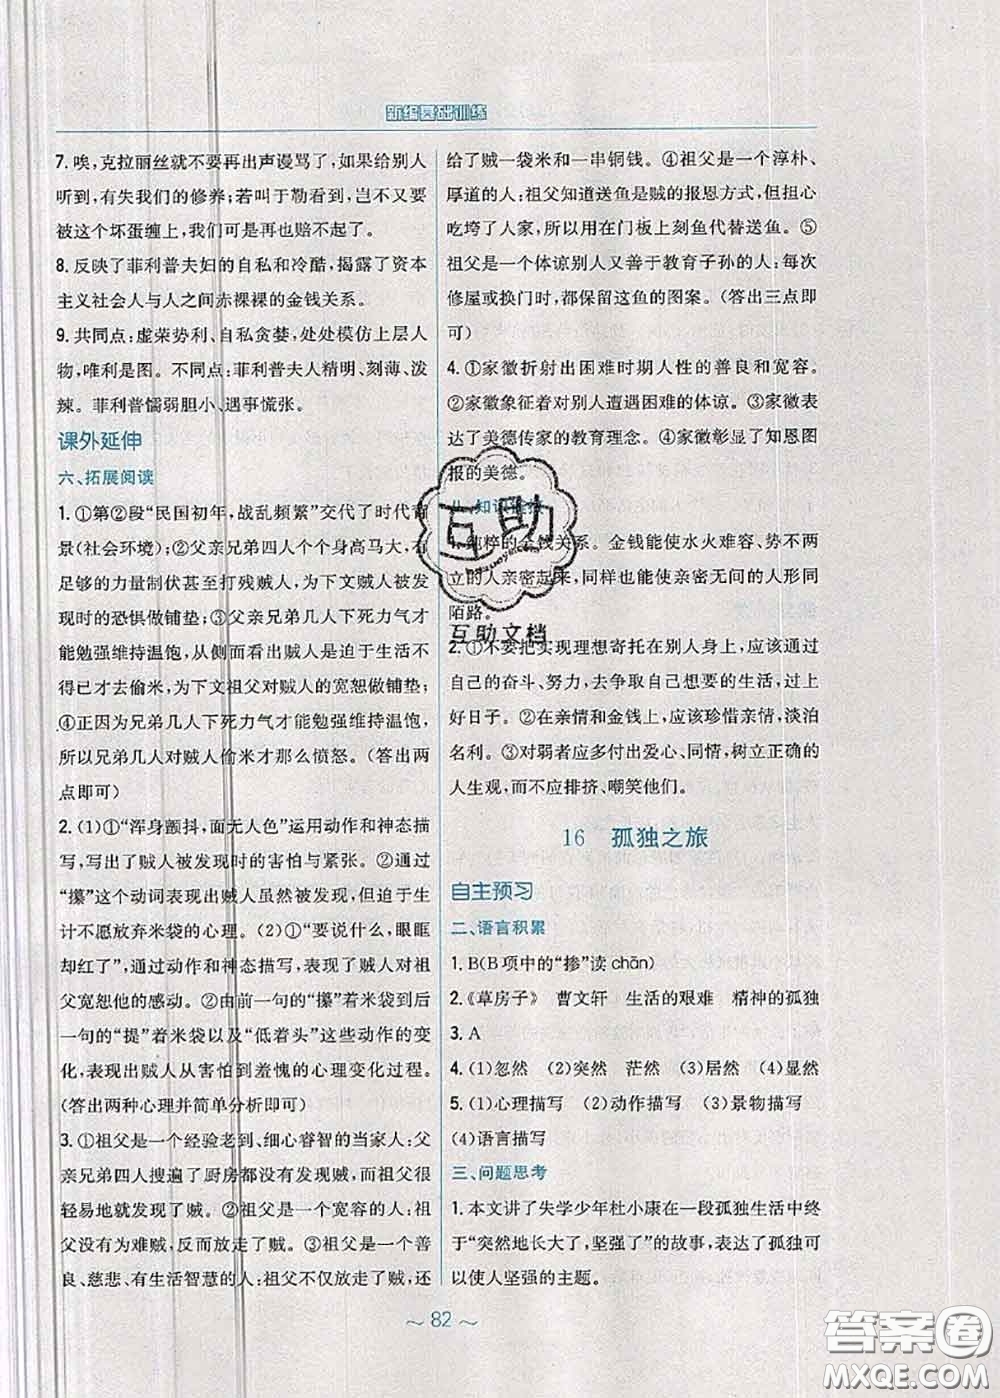 新编基础训练
7. 唉,克拉丽丝就不要再出声谩骂了,如果给别人
听到,有失我们的修养;若叫于勒看到,岂不又要
被这个坏蛋缠上,我们可是再也赔不起了。
8. 反映了菲利普夫妇的自私和冷酷,揭露了资本
主义社会人与人之间赤裸裸的金钱关系。
9. 共同点:虚荣势利、自私贪婪,处处模仿上层人
物,唯利是图。不同点:菲利普夫人精明、刻薄、泼
辣。菲利普懦弱胆小、遇事慌张。
课外延伸
六、拓展阅读
1. ①第②段“民国初年,战乱频繁”交代了时代背
景(社会环境);②父亲兄弟四人个个身高马大,有
足够的力量制伏甚至打残贼人,为下文贼人被发
现时的恐惧做铺垫;③父亲兄弟几人下死力气才
能勉强维持温饱,从侧面看出贼人是迫于生活不
得已才去偷米,为下文祖父对贼人的宽恕做铺垫;
④正因为兄弟几人下死力气才能勉强维持温饱,
所以兄弟几人对贼人偷米才那么愤怒。(答出两
点即可)
2. (1)①“浑身颤抖,面无人色”运用动作和神态描
写,写出了贼人被发现时的害怕与紧张。②通过
“攥”这个动词表现出贼人虽然被发现,但迫于生
计不愿放弃米袋的心理。(2)①“要说什么,眼眶
却红了”通过动作和神态描写,表现了贼人对祖
父宽恕他的感动。②由前一句的“攥”着米袋到后
一句的“提”着米袋以及“低着头”这些动作的变
化,表现出贼人从害怕到羞愧的心理变化过程。
(答出两种心理并简单分析即可)
3. ①祖父是一个经验老到、细心睿智的当家人:父
亲兄弟四人搜遍了厨房都没有发现贼,而祖父很
轻易地就发现了贼。②祖父是一个宽容的人:祖
父没有为难贼,反而放走了贼。③祖父是一个善
良、慈悲、有生活智慧的人:祖父不仅放走了贼,还
给了贼一袋米和一串铜钱。④祖父是一个淳朴、
厚道的人:祖父知道送鱼是贼的报恩方式,但担心
吃垮了人家,所以用在门板上刻鱼代替送鱼。⑤
祖父是一个体谅别人又善于教育子孙的人:每次
修屋或换门时,都保留这鱼的图案。(答出三点即
可)
4. ①家徽折射出困难时期人性的善良和宽容。
②家徽象征着对别人遭遇困难的体谅。③家徽表
达了美德传家的教育理念。④家徽彰显了知恩图
报的美德。
八、知识链接
1. 纯粹的金钱关系。金钱能使水火难容、势不两
立的人亲密起来,同样也能使亲密无间的人形同
陌路。
2. ①不要把实现理想寄托在别人身上,应该通过
自己的奋斗、努力,去争取自己想要的生活,过上
好日子。②在亲情和金钱上,应该珍惜亲情,淡泊
名利。③对弱者应多付出爱心、同情,树立正确的
人生观,而不应排挤、嘲笑他们。
16 孤独之旅
自主预习
二、语言积累
1. B(B项中的“掺”读chān)
2. 《草房子》 曹文轩 生活的艰难 精神的孤独
3. A
4. (1)忽然 (2)突然 茫然 (3)居然 (4)显然
5. (1)心理描写 (2)动作描写 (3)景物描写
(4)语言描写
三、问题思考
1. 本文讲了失学少年杜小康在一段孤独生活中终
于“突然地长大了,坚强了”的故事,表达了孤独可
以使人坚强的主题。
~ 82 ~
互助
互助文档
答案圈
MXQE.COM